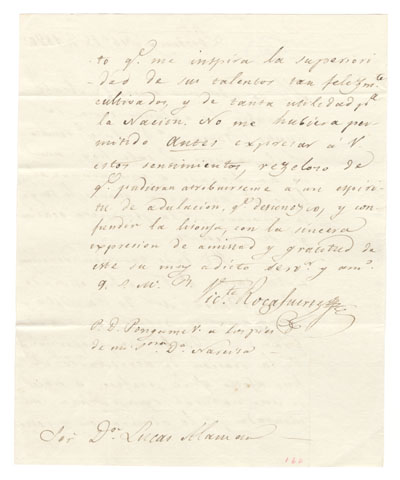 to q.e me inspira la superiori-
dad de sus talentos tan felizm.te
cultivados, y de tanta utilidad p.a
la Nacion. No me hubiera per-
mitido antes expresar á V
estos sentimientos, rezeloso de
q.e pudieran atribuirseme á un espiri-
tu de adulacion, q.e desconozco, y con-
fundir la lisonja, con la sincera
expresion de amistad y gratitud de
este su muy adicto serv.r y am.o
Q. S. M. B.
Vic.te Rocafuerte
P. D. Pongame V. a los pies
de mi S.ora D.a Narcisa
Sor D.on Lucas Alaman